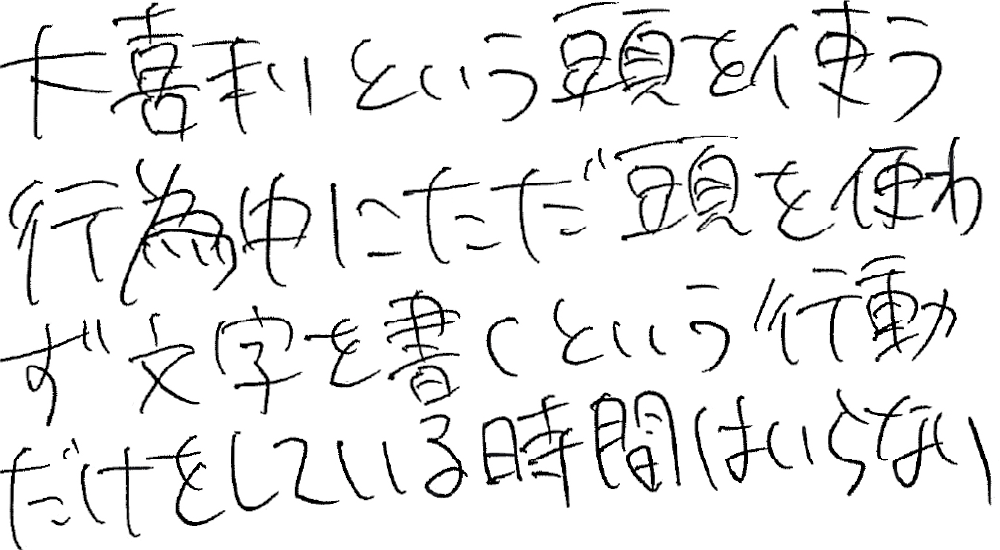 大喜利という頭を使う
行為中にただ頭を使わ
ず文字を書くという行動
だけをしている時間はいらない